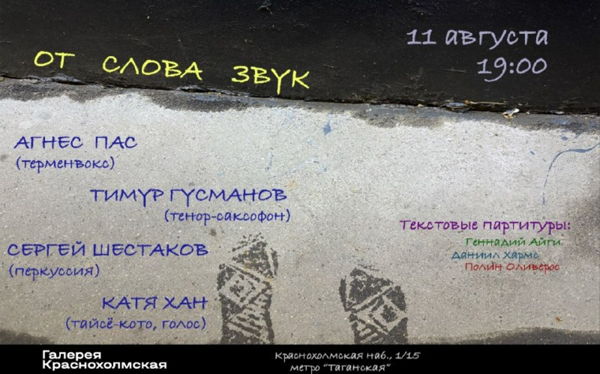 11 августа
19:00
ОТ СЛОВА ЗВУК
АГНЕС ПАС
(терменвокс)
ТИМУР ГУСМАНОВ
(тенор-саксофон)
СЕРГЕЙ ШЕСТАКОВ
(перкуссия)
КАТЯ ХАН
(тайсё-кото, голос)
Текстовые партитуры:
Геннадий Айги
Даниил Хармс
Полин Оливерос
Галерея
Краснохолмская
Краснохолмская наб., 1/15
метро "Таганская"